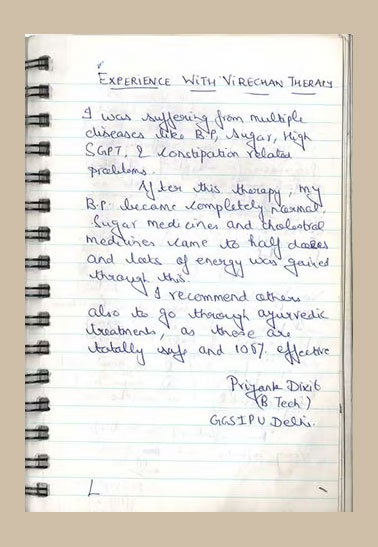 EXPERIENCE WITH VIRECHAN THERAPY
I was suffering from multiple
diseases like B.P, Sugar, High
SGPT, & Constipation related
problems.
After this therapy, my
B.P. became completely normal,
Sugar medicines and cholestrol
medicines came to half doses
and lots of energy was gained
through this.
I recommend others
also to go through ayurvedic
treatments, as these are
totally safe and 100% effective
Priyank Dixit
(B.Tech.)
GGSIPU Delhi.